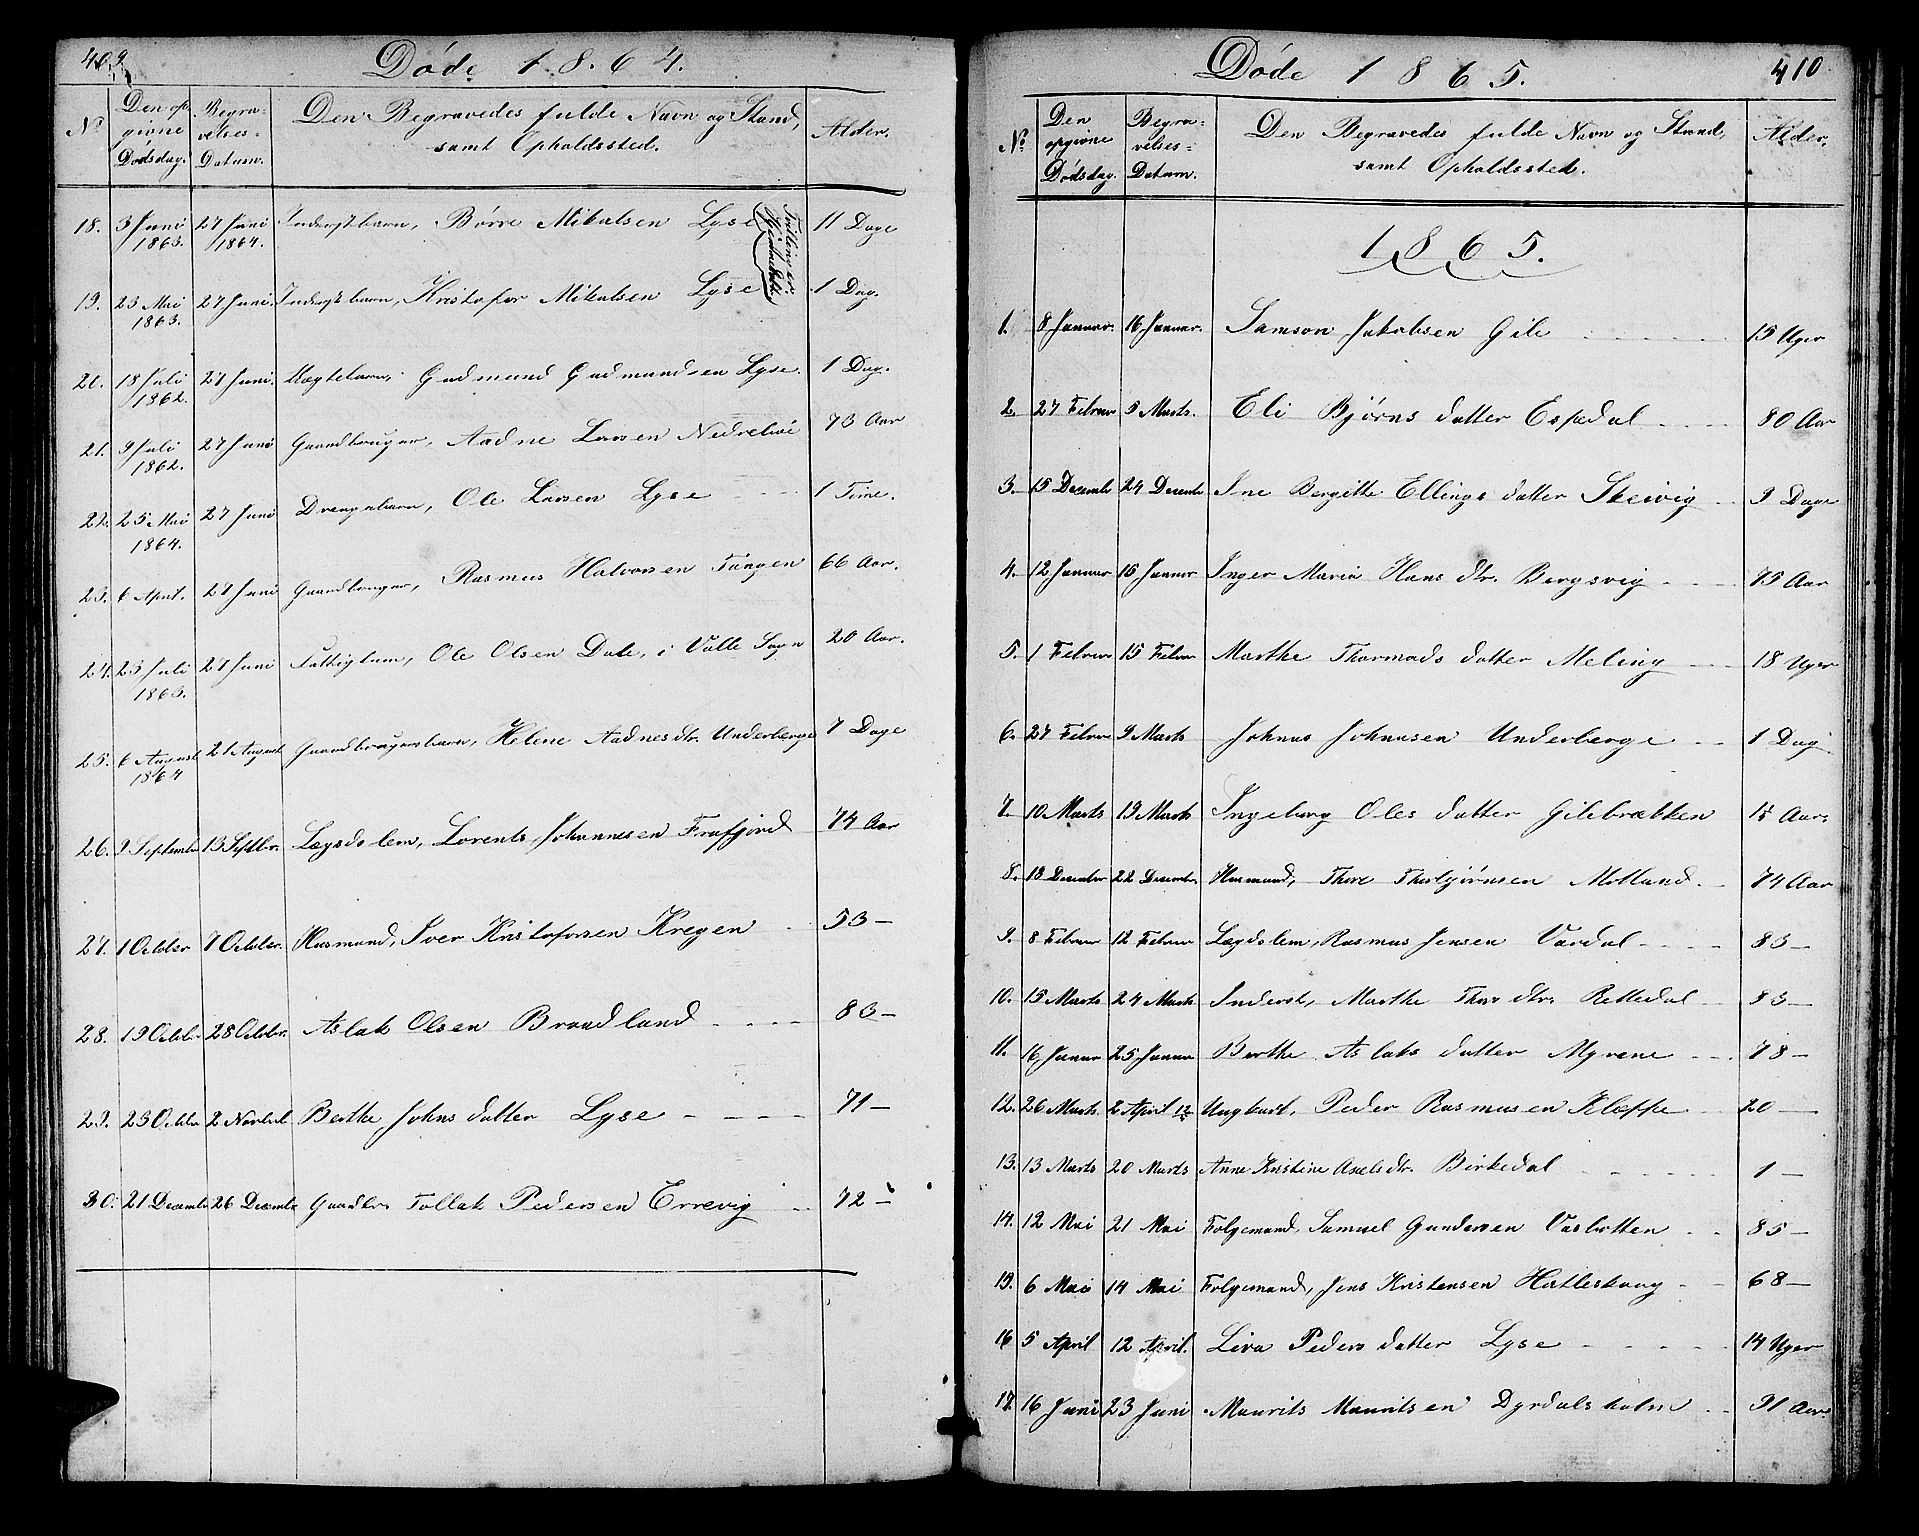 409
Døde 1864.
No
Den op
givne
Dødsdag.
Begra
velses=
Datum.
Den Begravedes fulde Navn og Stand,
samt Opholdssted.
Alder.
18. 3 Juni 1863. 27 Juni 1864. Inderstbarn, Børre Mikalsen Lyse 11 Dage
Tvillinger
19. 23 Mai 1863. 27 Juni. Inderstbarn, Kristofer Mikalsen Lyse 1 Dag.
20. 18 Juli 1862. 27 Juni. Uægtebarn, Gudmund Gudmundsen Lyse. 1 Dag.
21. 9 Juli 1862. 27 Juni Gaardbruger, Aadne Larsen Nedrebø 73 Aar
22. 25 Mai 1864. 27 Juni Drengebarn, Ole Larsen Lyse 1 Time.
23. 6 April. 27 Juni Gaardbruger, Rasmus Halvorsen Tungen 66 Aar.
24. 23 Juli 1863. 27 Juni Fattiglem, Ole Olsen Dale, i Valle Sogn 20 Aar.
25. 6 August 1864 21 August Gaardbrugersbarn, Helene Aadnesdtr. Underberge 7 Dage
26. 9 September 13 Septbr. Lægdslem, Lorents Johannesen Frafjord 74 Aar
27. 1 Octobr 7 Octobr. Husmand, Iver Kristofersen Kregen 53 —
28. 19 Octobr 28 Octobr. Aslak Olsen Brandland 83 —
29. 23 Octobr 2 Novbr Berthe Johnsdatter Lyse 71 —
30. 21 Decembr 26 Decembr Gaardbr. Tollak Pedersen Errevig 72 —
Døde 1865.
410
No
Den
opgivne
Dødsdag.
Begra=
velses=
Datum.
Den Begravedes fulde Navn og Stand,
samt Opholdssted.
Alder.
1865.
1. 8 Januar. 16 Januar. Samson Jakobsen Gile 15 Uger
2. 27 Februar 5 Marts. Eli Bjørnsdatter Espedal 80 Aar
3. 15 Decembr 24 Decembr Ine Bergitte Ellingsdatter Skeivig 9 Dage
4. 12 Januar 15 Januar Inger Maria Hansdtr. Bergsvig 75 Aar
5. 1 Februar 15 Februar Marthe Thormodsdatter Meling 18 Uger
6. 27 Februar 9 Marts Johnas Johnasen Underberge 1 Dag
7. 10 Marts 19 Marts Ingeborg Olesdatter Gilebrækken 15 Aar
8. 13 December 22 December Husmand, Thore Thorbjørnsen Molland 74 Aar
9. 8 Februar 12 Februar Lægdslem, Rasmus Jensen Vardal 83 —
10. 15 Marts 24 Marts Inderst, Marthe Thorsdtr. Rettedal 83 —
11. 16 Januar 25 Januar Berthe Aslaksdatter Myrene 78 —
12. 26 Marts 2 April Ungkarl, Peder Rasmusen Kleppe 20 —
13. 13 Marts 20 Marts Anne Kristine Axelsdtr. Birkedal 1 —
14. 12 Mai 21 Mai Folgemand, Samuel Gundersen Vasbotten 85 —
15. 6 Mai 14 Mai Folgemand, Jens Kristensen Hatleskaag 68 —
16 5 April 12 April. Liva Pedersdatter Lyse 14 Uger
17. 16 Juni 23 Juni Maurits Mauritsen Dyrdalsholm 91 Aar